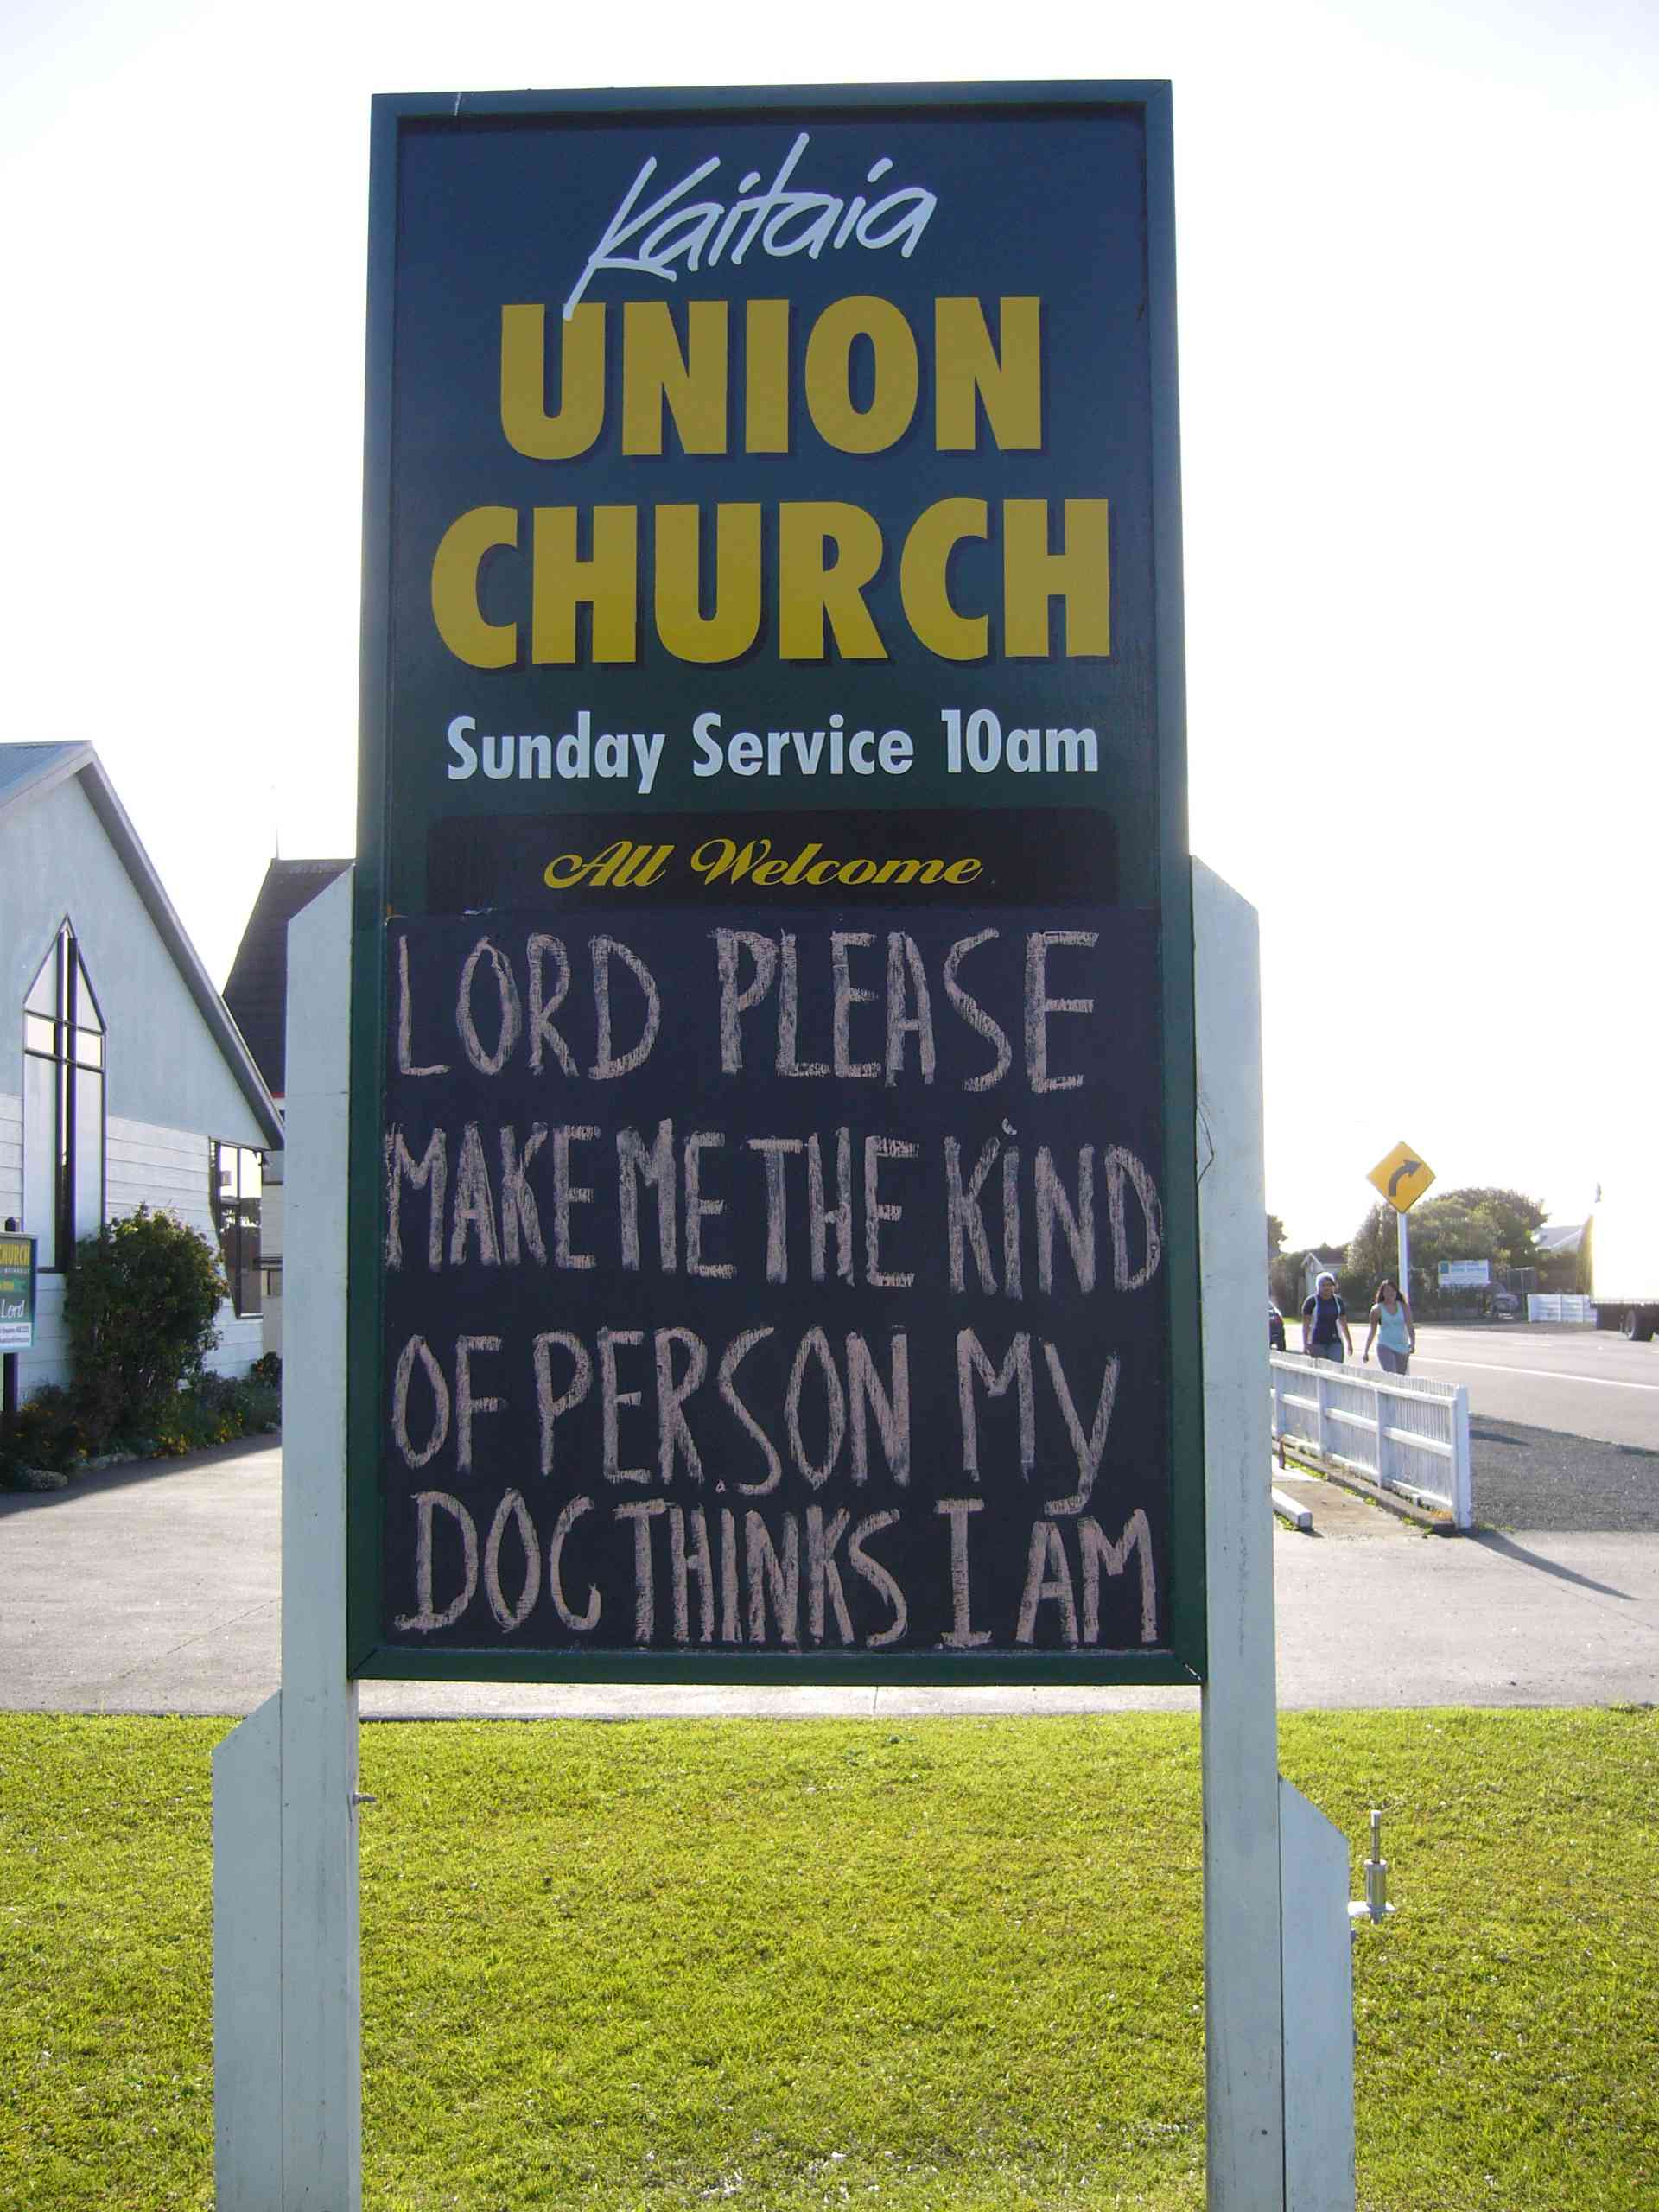 Kaitaia
UNION
CHURCH
Sunday Service 10am
All Welcome
LORD PLEASE
MAKE ME THE KiND
OF PERSON My
DOG THINKS I AM
CHURCH
Lord